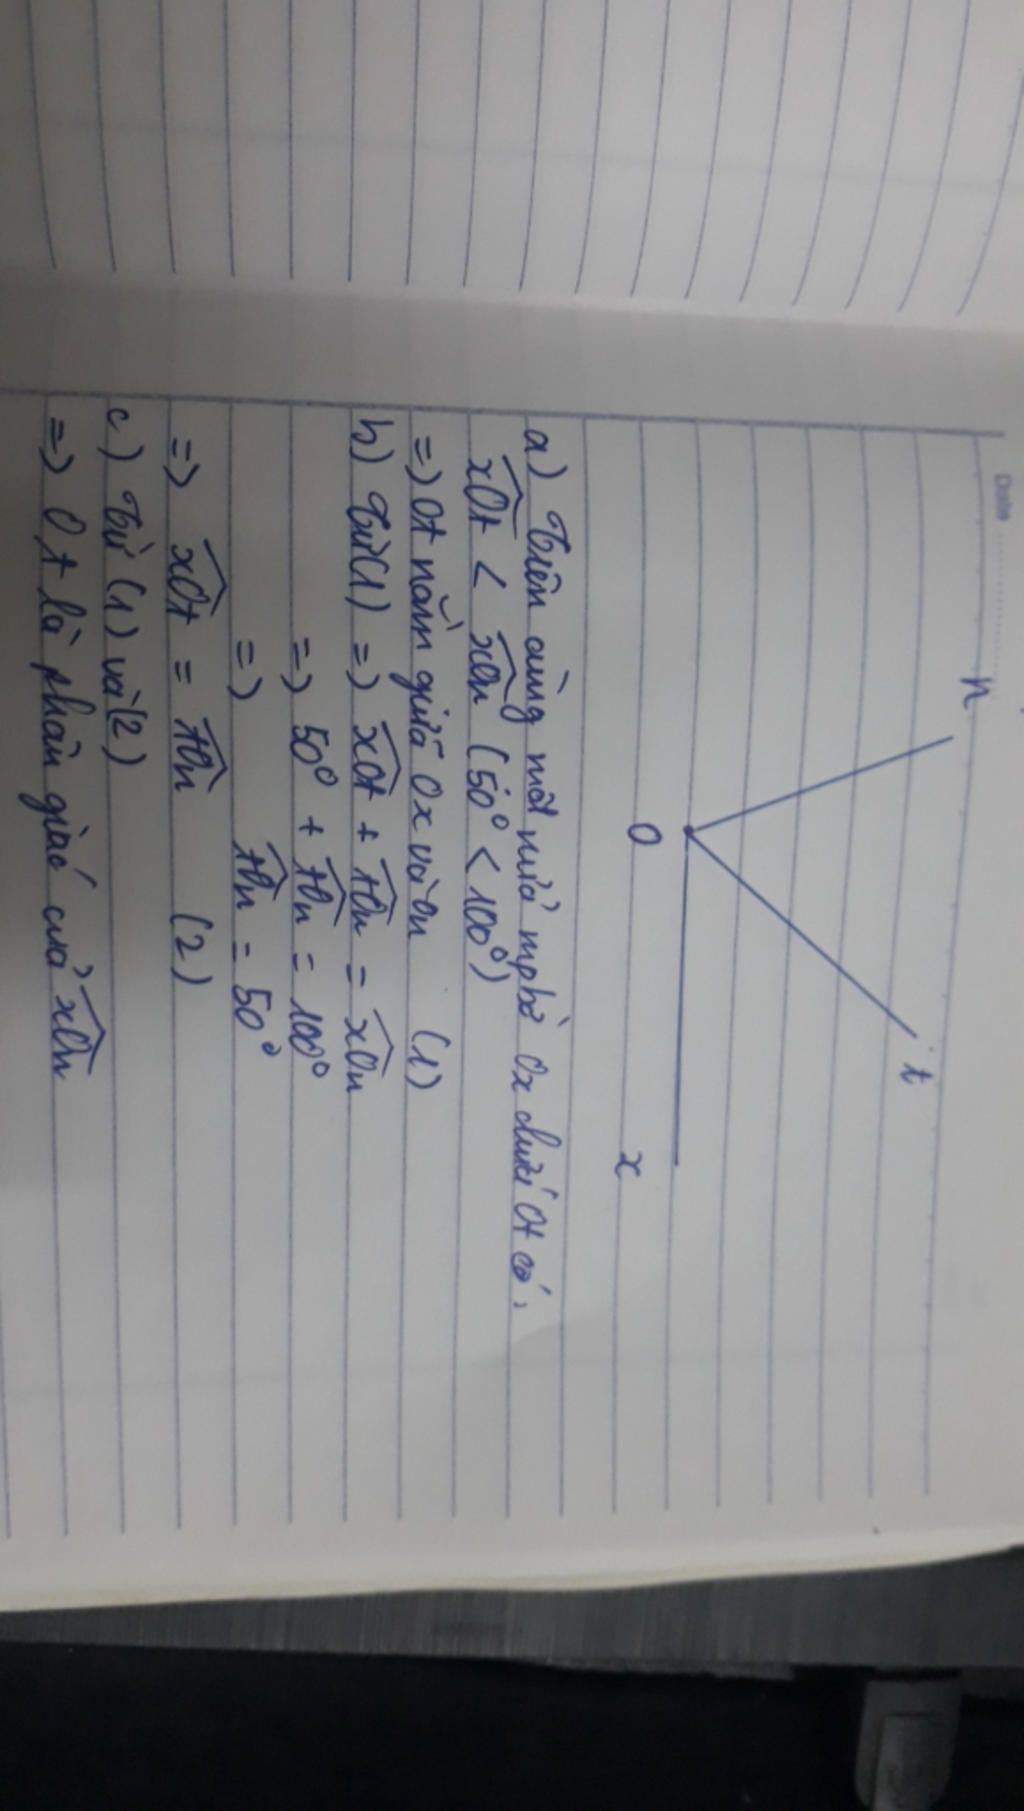 Date
n
t
O
x
a) Trên cùng một nửa mp bờ Ox chứa Ot có,
xOt < xOn (50° < 100°)
=> Ot nằm giữa Ox và On (1)
b) Từ (1) => xOt + tOn = xOn
=> 50° + tOn = 100°
=> tOn = 50°
=> xOt = tOn (2)
c) Từ (1) và (2)
=> Ot là phân giác của xOn